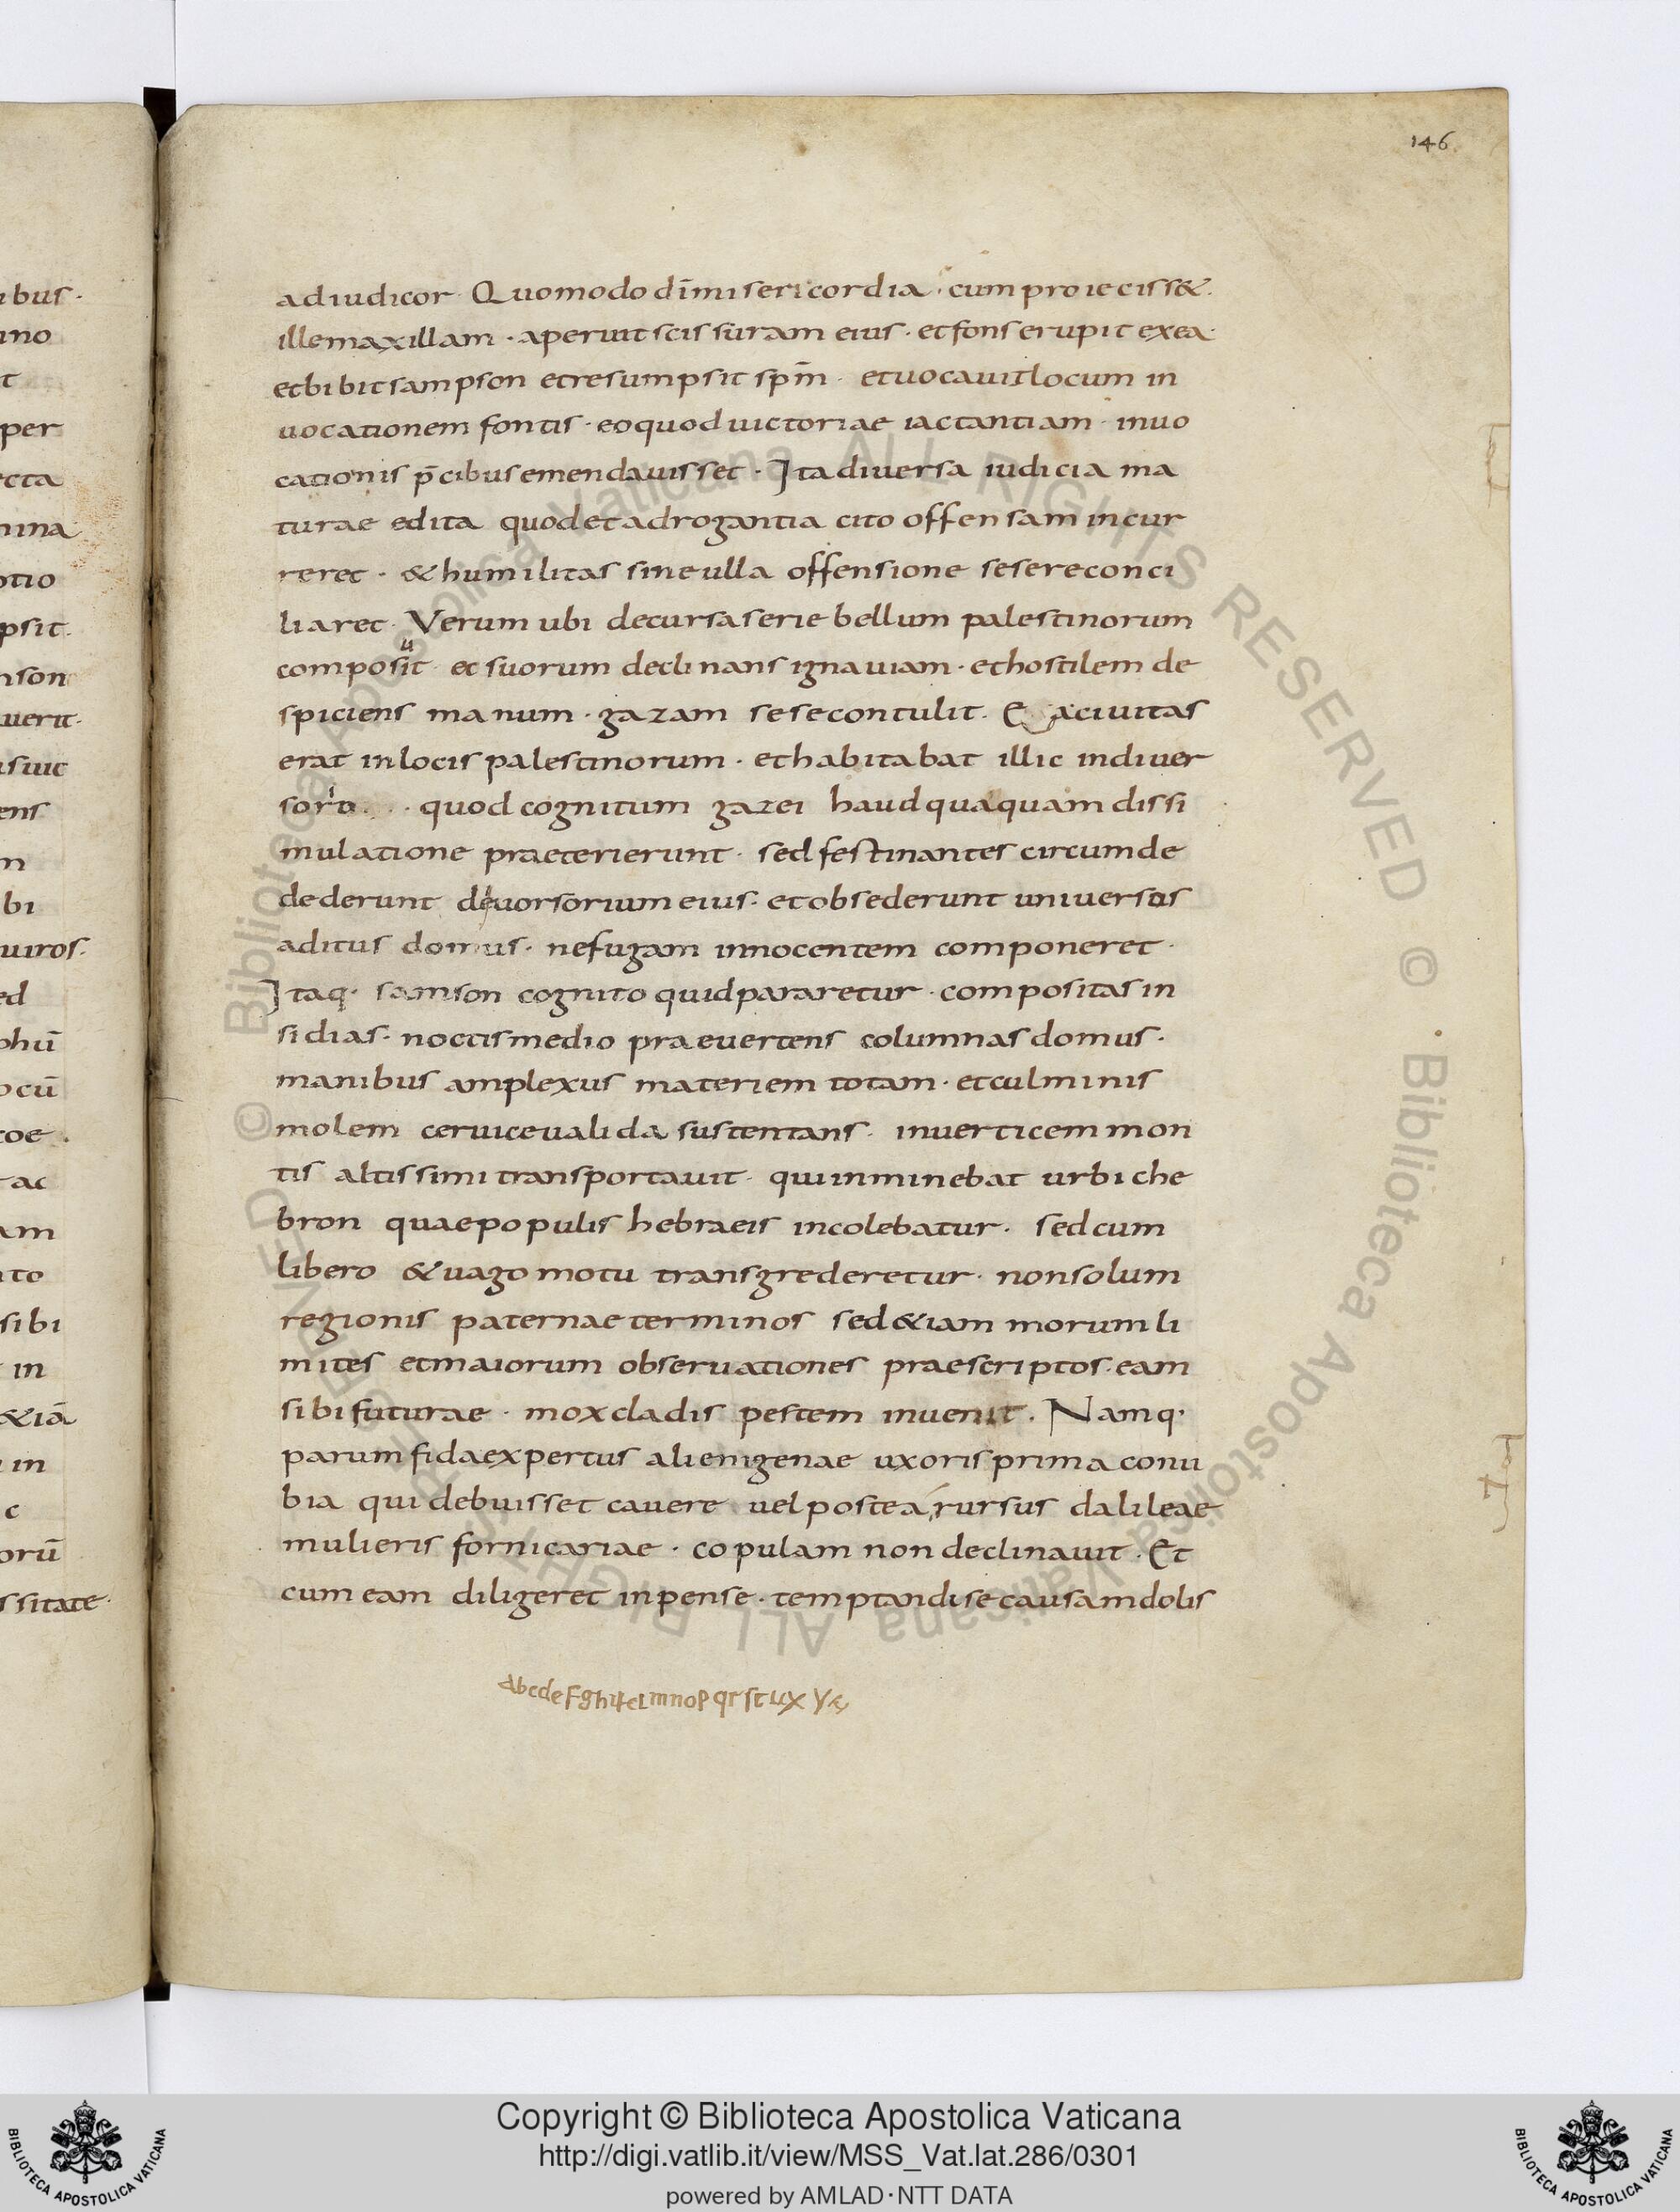 146
ibus·
uno
t
per
ecta
nina
otio
psit.
nson
uerit·
suic
ens
m
bi
uiros.
ed
phū
ocū
toe.
ac
am
to
sibi
in
&iā
in
c
orū
ssitate·
adiudicor Quomodo dīmisericordia· cumproieciss&·
illemaxillam· aperuit scissuram eius· etfonserupit exea·
etbibitsampson etresumpsit spm̄· etuocauitlocum in
uocationem fontis· eoquod uictoriae iactantiam· inuo
cationis p̄cibus emendauisset· Ita diuersa iudicia ma
turae edita quodetadrogantia cito offensam incur
reret· & humilitas sineulla offensione sesereconci
liaret· Verum ubi decursaserie bellum palestinorum
composuit et suorum declinans ignauiam· ethostilem de
spiciens manum· gazam sesecontulit. E aciuitas
erat inlocis palestinorum· ethabitabat illic indiuer
sorio· quod cognitum gazei haudquaquam dissi
mulatione praeterierunt· sed festinantes circumde
dederunt deuorsorium eius· etobsederunt uniuersos
aditus domus· nefugam innocentem componeret·
Itaq· samson cognito quidpararetur· compositas in
sidias· noctismedio praeuertens columnas domus·
manibus amplexus materiem totam· etculminis
molem ceruiceualida sustentans· inuerticem mon
tis altissimi transportauit· quiinminebat urbi che
bron quaepopulis hebraeis incolebatur· sedcum
libero & uago motu transgrederetur· nonsolum
regionis paternae terminos sed&iam morum li
mites etmaiorum obseruationes praescriptos· eam
sibi futurae· mox cladis pestem inuenit. Namq·
parum fidaexpertus alienigenae uxoris prima conu
bia qui debuisset cauere uel postea rursus dalileae
mulieris fornicariae· copulam non declinauit· Et
cum eam diligeret inpense· temptandise causamdolis
abcdeFghiklmnopqrstuxyz
Copyright © Biblioteca Apostolica Vaticana
http://digi.vatlib.it/view/MSS_Vat.lat.286/0301
powered by AMLAD·NTT DATA
BIBLIOTECA APOSTOLICA VATICANA
BIBLIOTECA APOSTOLICA VATICANA
© Biblioteca Apostolica Vaticana ALL RIGHTS RESERVED © Biblioteca Apostolica Vaticana ALL RIGHTS RESERVED